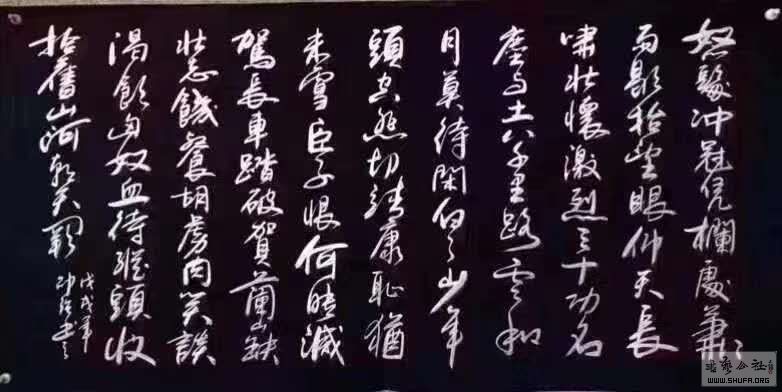 怒髮冲冠凭欄處蕭〻
雨歇抬望眼仰天長
嘯壯懷激烈三十功名
塵与土八千里路云和
月莫待閑白了少年
頭空悲切靖康恥猶
未雪臣子恨何時滅
駕長車踏破賀蘭山缺
壯志饑餐胡虜肉笑談
渴飲匈奴血待從頭收
拾舊山河朝天闕
戊戌年
書藝公社
WWW.SHUFA.ORG